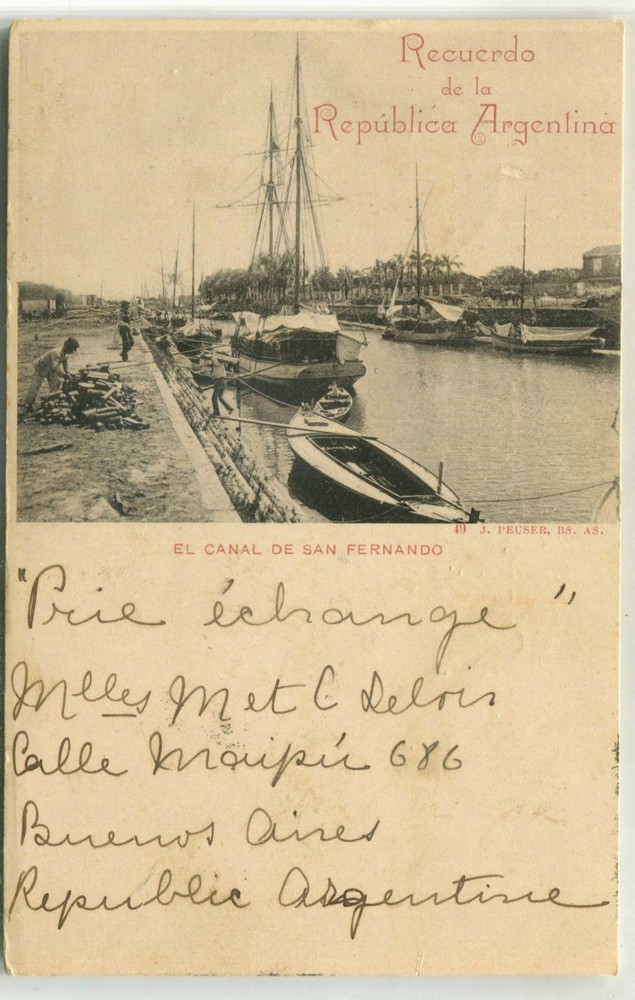 Recuerdo
de la
República Argentina
49 J. PEUSER, BS. AS.
EL CANAL DE SAN FERNANDO
"Prie échange"
Mlles M et C Delois
Calle Maipú 686
Buenos Aires
Republic Argentine